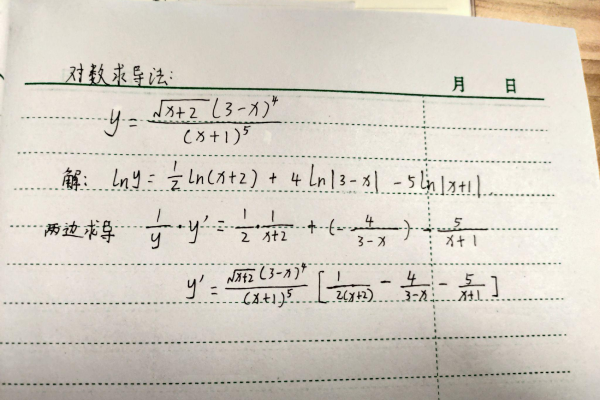 对数求导法:
月 日
y = √(x+2) (3-x)⁴ / (x+1)⁵
解: lny = 1/2 ln(x+2) + 4 ln|3-x| - 5 ln|x+1|
两边求导 1/y · y' = 1/2 · 1/(x+2) + (- 4/(3-x)) - 5/(x+1)
y' = √(x+2) (3-x)⁴ / (x+1)⁵ [ 1/(2(x+2)) - 4/(3-x) - 5/(x+1) ]